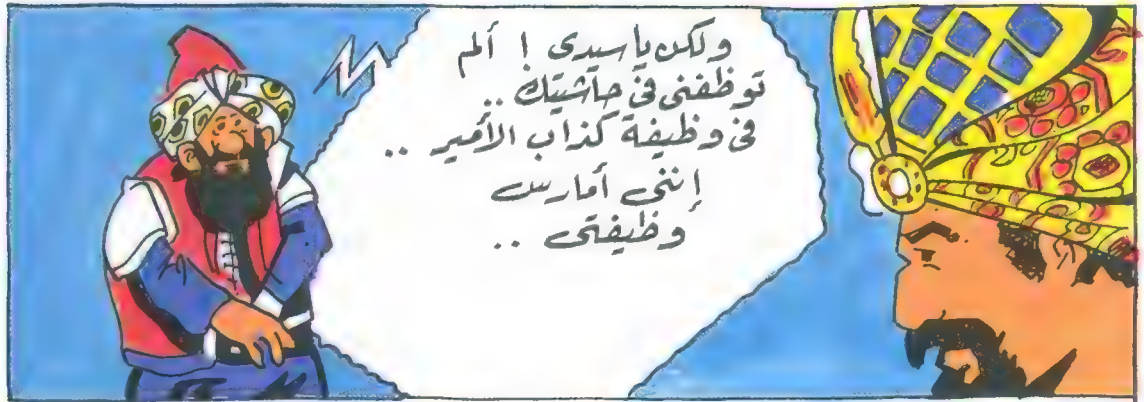 ولكن يا سيدى ! ألم
توظفنى فى حاشيتك ..
فى وظيفة كذاب الأمير ..
إننى أمارس
وظيفتى ..